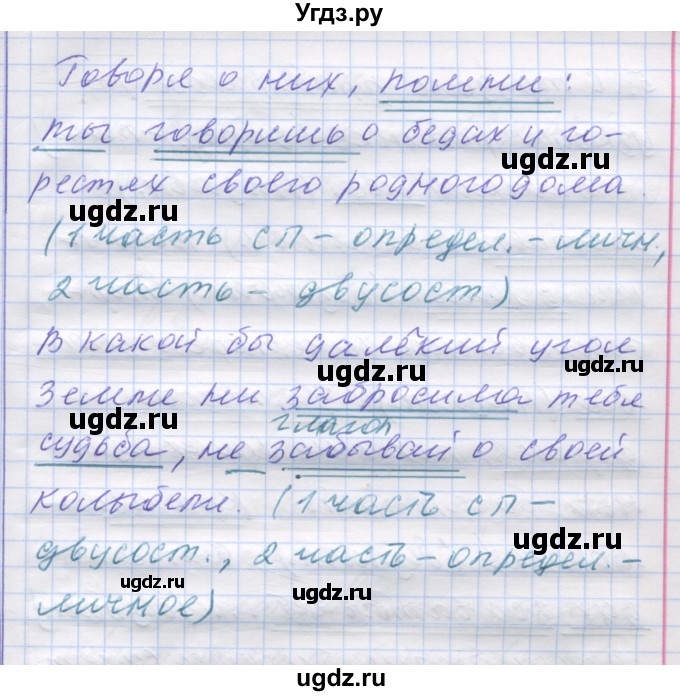 Угдз.ру
Говоря о них, помни:
ты говоришь о бедах и го-
рестях своего родного дома.
ugdz.ru
ugdz.ru
(1 часть сп – определ. – личн.,
ugdz.ru
2 часть – двусост.)
В какой бы далёкий угол
ugdz.ru
земли ни забросила тебя
ugdz.ru
глагол
судьба, не забывай о своей
колыбели. (1 часть сп –
ugdz.ru
двусост., 2 часть – определ. –
ugdz.ru
личное)
ugdz.ru
ugdz.ru
ugdz.ru